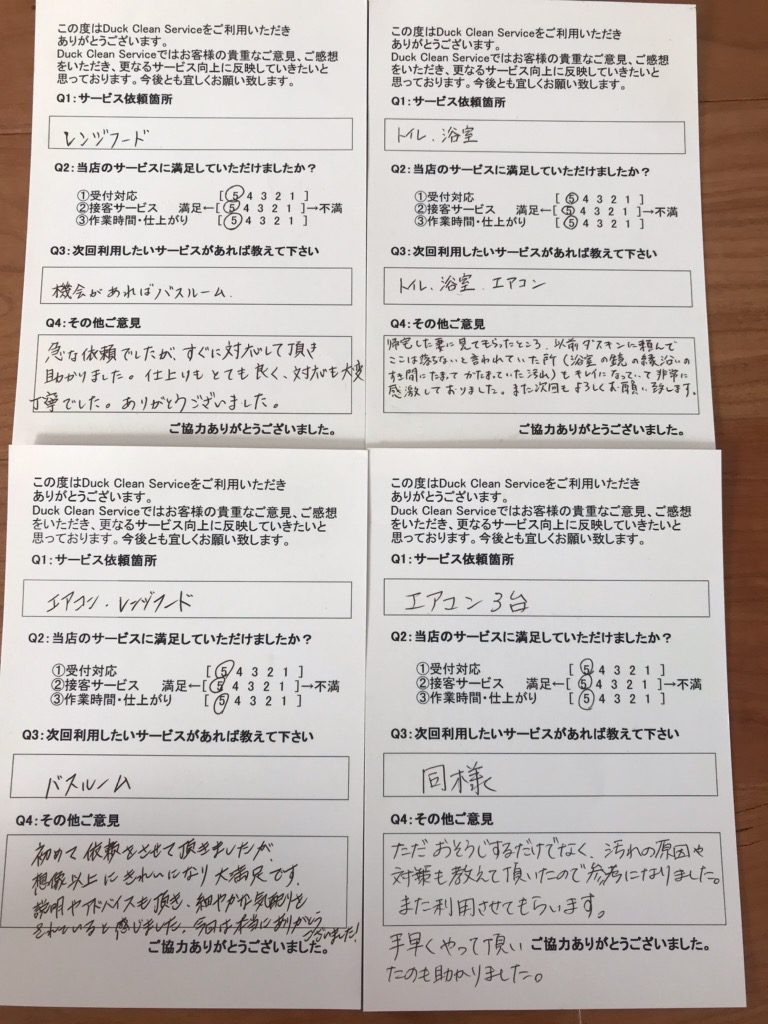 この度はDuck Clean Serviceをご利用いただき
ありがとうございます。
Duck Clean Serviceではお客様の貴重なご意見、ご感想
をいただき、更なるサービス向上に反映していきたいと
思っております。今後とも宜しくお願い致します。
Q1:サービス依頼箇所
レンジフード
Q2:当店のサービスに満足していただけましたか?
①受付対応 [ 5 4 3 2 1 ]
②接客サービス 満足←[ 5 4 3 2 1 ]→不満
③作業時間・仕上がり [ 5 4 3 2 1 ]
Q3:次回利用したいサービスがあれば教えて下さい
機会があればバスルーム.
Q4:その他ご意見
急な依頼でしたが、すぐに対応して頂き
助かりました。仕上りもとても良く、対応も大変
丁寧でした。ありがとうございました。
ご協力ありがとうございました。
この度はDuck Clean Serviceをご利用いただき
ありがとうございます。
Duck Clean Serviceではお客様の貴重なご意見、ご感想
をいただき、更なるサービス向上に反映していきたいと
思っております。今後とも宜しくお願い致します。
Q1:サービス依頼箇所
トイレ、浴室
Q2:当店のサービスに満足していただけましたか?
①受付対応 [ 5 4 3 2 1 ]
②接客サービス 満足←[ 5 4 3 2 1 ]→不満
③作業時間・仕上がり [ 5 4 3 2 1 ]
Q3:次回利用したいサービスがあれば教えて下さい
トイレ、浴室、エアコン
Q4:その他ご意見
帰宅した妻に見てもらったところ、以前ダスキンに頼んで
ここは落ちないと言われていた所(浴室の鏡の縁沿いの
すき間にたまってかたまっていた汚れ)もキレイになっていて非常に
感激しておりました。また次回もよろしくお願い致します。
ご協力ありがとうございました。
この度はDuck Clean Serviceをご利用いただき
ありがとうございます。
Duck Clean Serviceではお客様の貴重なご意見、ご感想
をいただき、更なるサービス向上に反映していきたいと
思っております。今後とも宜しくお願い致します。
Q1:サービス依頼箇所
エアコン・レンジフード
Q2:当店のサービスに満足していただけましたか?
①受付対応 [ 5 4 3 2 1 ]
②接客サービス 満足←[ 5 4 3 2 1 ]→不満
③作業時間・仕上がり [ 5 4 3 2 1 ]
Q3:次回利用したいサービスがあれば教えて下さい
バスルーム
Q4:その他ご意見
初めて依頼をさせて頂きましたが、
想像以上にきれいになり大満足です。
説明やアドバイスも頂き、細やかな気配りを
されていると感じました。今日は本当にありがとう
ございました!
ご協力ありがとうございました。
この度はDuck Clean Serviceをご利用いただき
ありがとうございます。
Duck Clean Serviceではお客様の貴重なご意見、ご感想
をいただき、更なるサービス向上に反映していきたいと
思っております。今後とも宜しくお願い致します。
Q1:サービス依頼箇所
エアコン3台
Q2:当店のサービスに満足していただけましたか?
①受付対応 [ 5 4 3 2 1 ]
②接客サービス 満足←[ 5 4 3 2 1 ]→不満
③作業時間・仕上がり [ 5 4 3 2 1 ]
Q3:次回利用したいサービスがあれば教えて下さい
同様
Q4:その他ご意見
ただおそうじするだけでなく、汚れの原因や
対策も教えて頂いたので参考になりました。
また利用させてもらいます。
手早くやって頂い
たのも助かりました。
ご協力ありがとうございました。